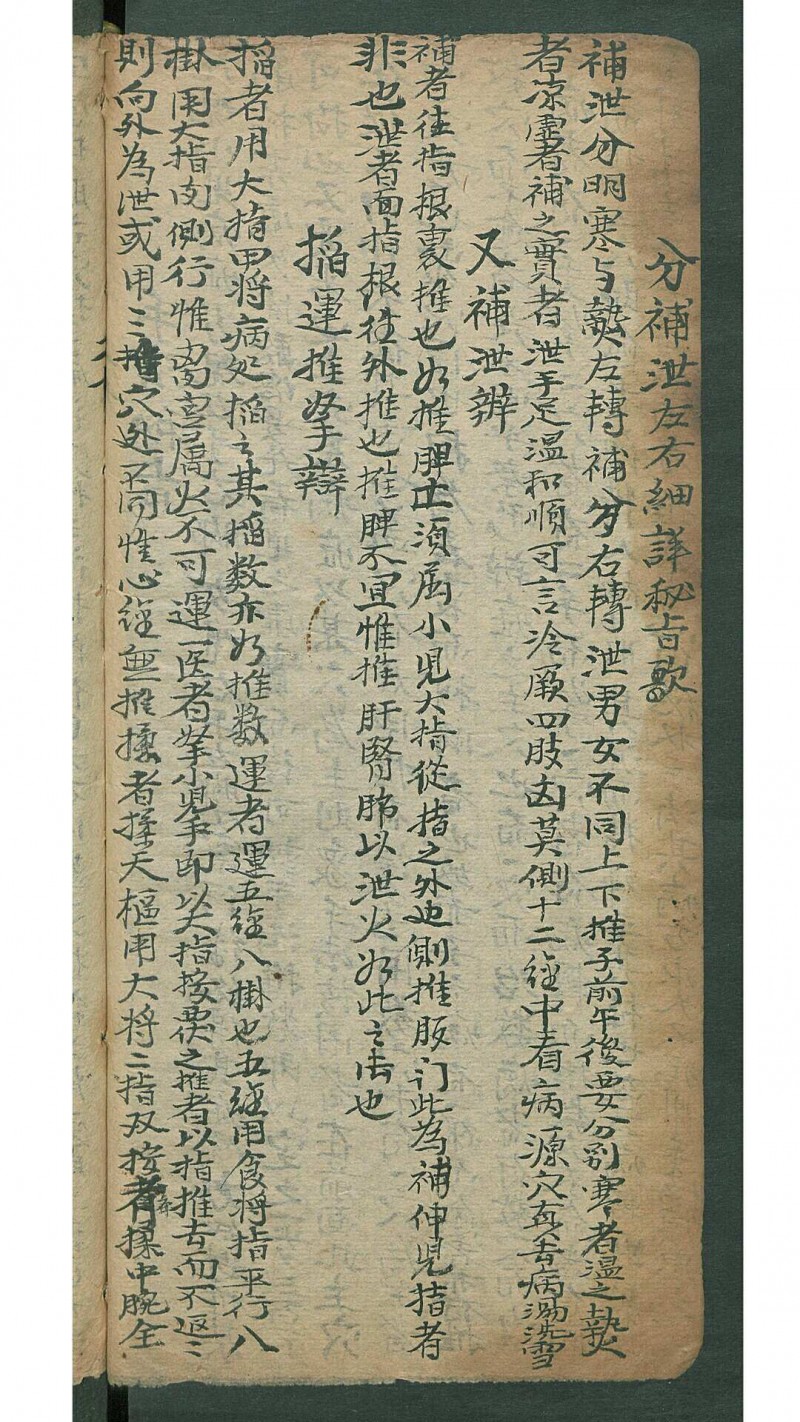 分補泄左右細詳秘旨歌
補泄分明寒与熱左轉補兮右轉泄男女不同上下推子前午後要分别寒者温之熱
者凉虚者補之實者泄手足温和順可言冷厥四肢凶莫側十二經中看病源穴真去病湯洗雪
又補泄辨
補者往指根裏推也如推脾土須属小児大指從指之外邊側推板门此為補伸児指者
非也泄者面指根往外推也推脾不宜惟推肝腎肺以泄火如此之法也
掐運推拏辯
掐者用大指甲将病処掐之其掐数亦如推数運者運五經八掛也五經用食将指平行八
掛用大指肉側行惟离宫属火不可運医者拏小児手即以大指按閔之推者以指推去而不返
則向外為泄或用三指穴処不同惟心經無推揉者揉天樞用大将二指双按者揉中腕全